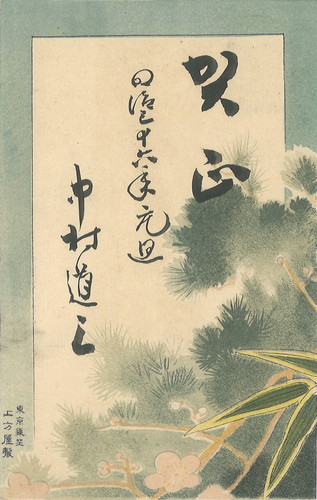 賀正
明治三十六年元旦
中村道之
東京銀芝
上方屋製